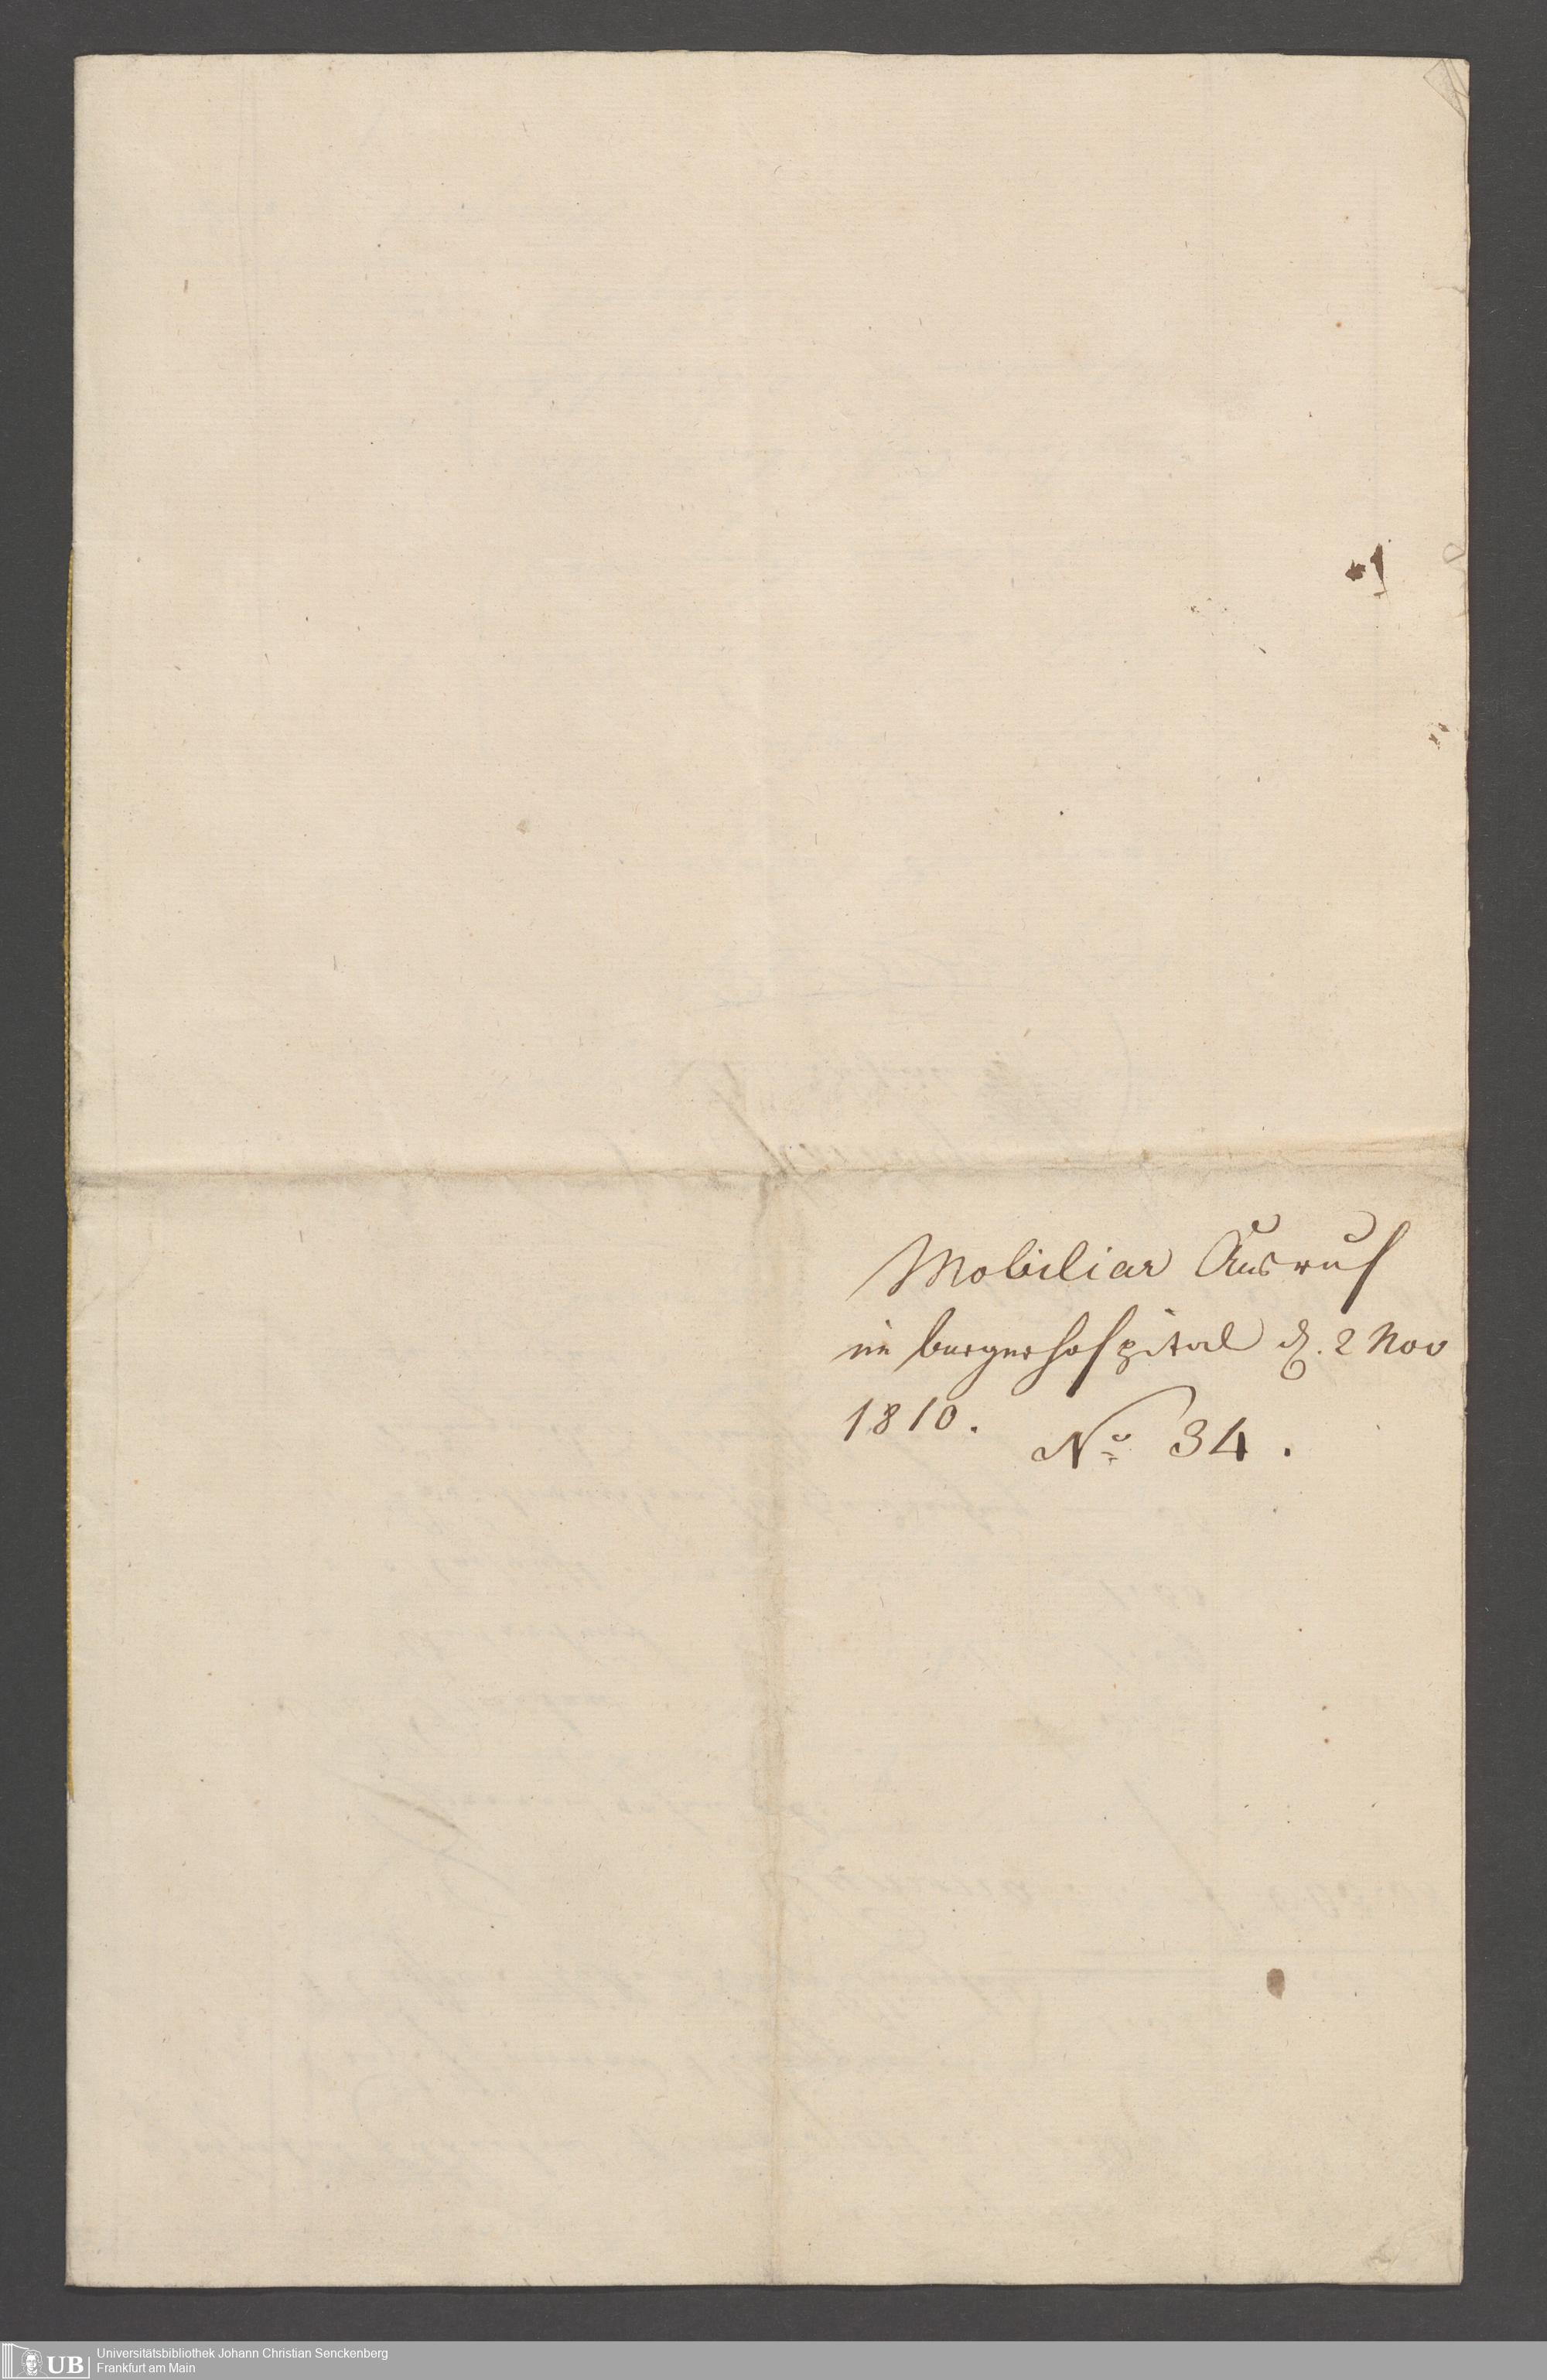 Mobiliar Ausruf
im burgerhospital d. 2 Nov
1810.
No 34.
Universitätsbibliothek Johann Christian Senckenberg
Frankfurt am Main
UB